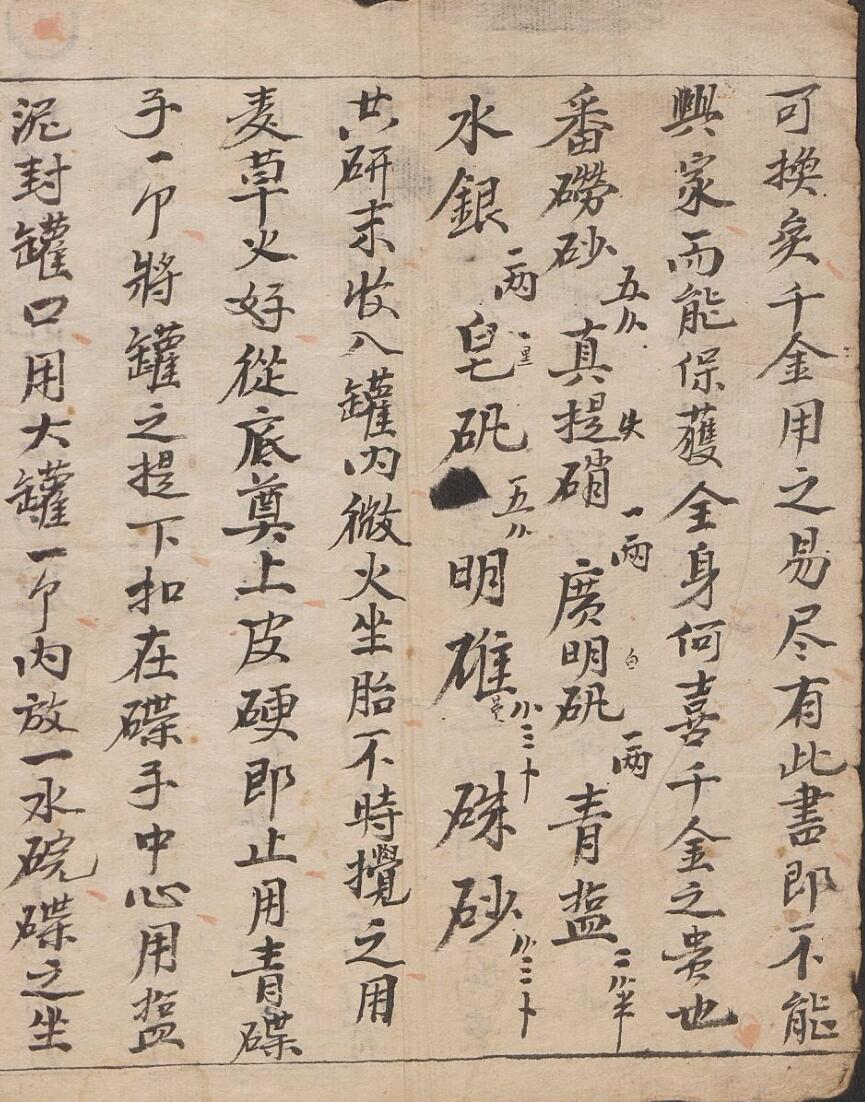 可換矣千金用之易尽有此書即不能
興家而能保獲全身何喜千金之貴也
番磱砂 五 真提硝 一兩 廣明矾 一兩 青盐 二 半
水銀 一两 皂矾 五 明碓 三 硃砂 三
共研末收入罐内微火坐胎不時攪之用
麦草火好從底奠上皮硬即止用青碟
子一卩將罐之提下扣在碟子中心用盐
泥封罐口用大罐一卩内放一水碗碟之坐